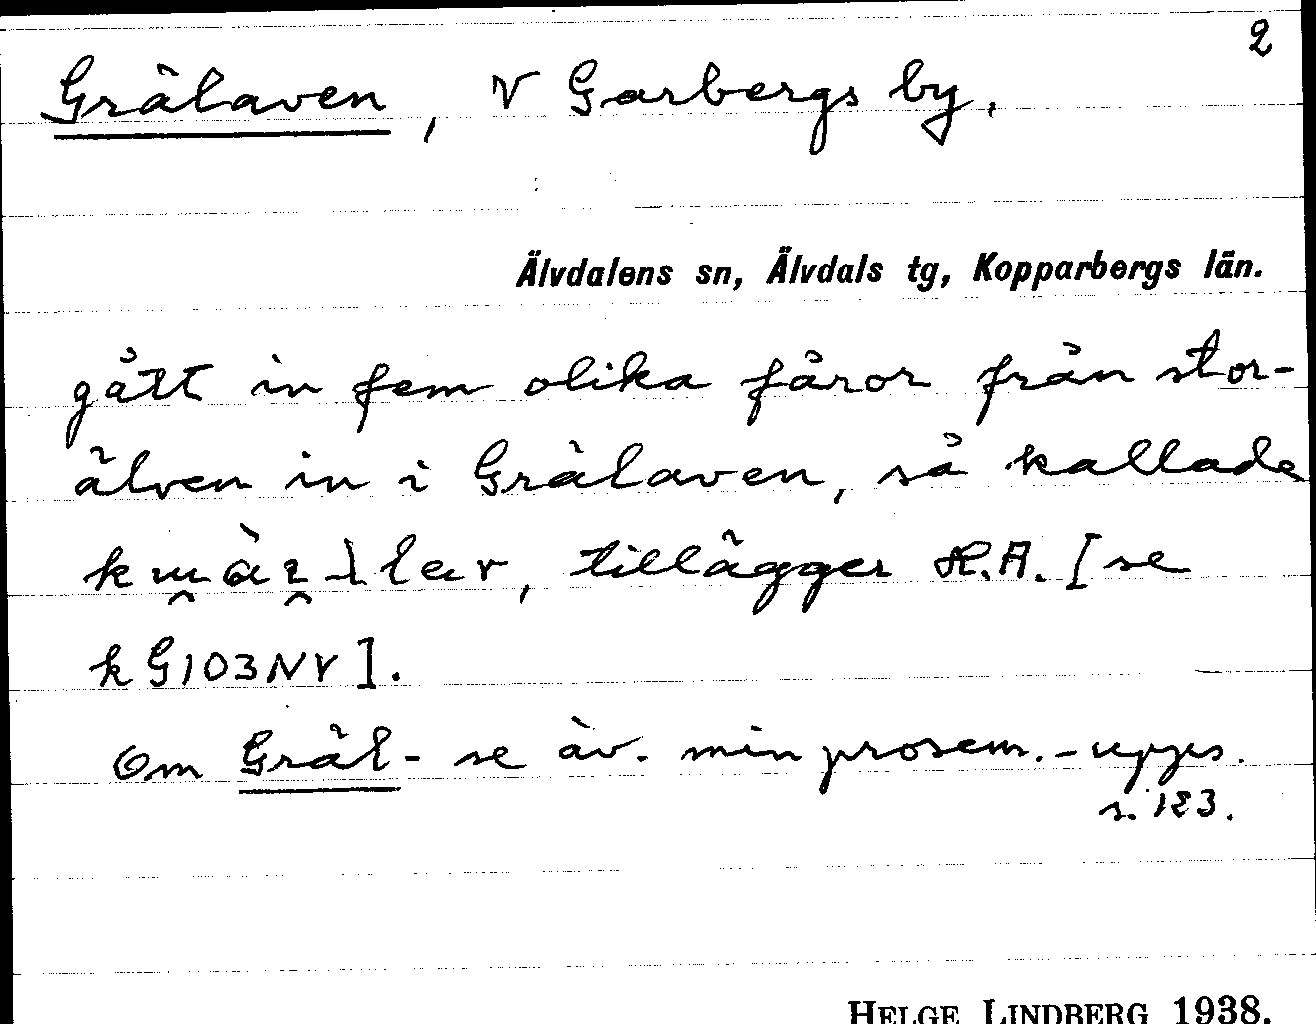 2
Grälaven, V Garbergs by.
Älvdalens sn, Älvdals tg, Kopparbergs län.
gått in fem olika fåror från stor-
älven in i Grälaven, så kallade
tillägger H.A. [se
k G103NV].
Om Gräl- se äv. min prosem.-upps.
s. 123.
HELGE LINDBERG 1938.